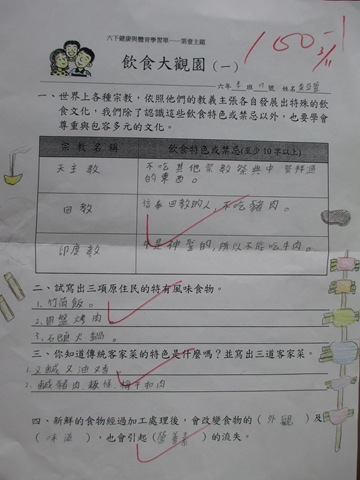 六下健康與體育學習單——第壹主題
100-1
3/11
飲食大觀園(一)
六年 班 號 姓名
一、世界上各種宗教,依照他們的教義主張各自發展出特殊的飲
食文化,我們除了認識這些飲食特色或禁忌以外,也要學會
尊重與包容多元的文化。
宗教名稱 飲食特色或禁忌(至少10字以上)
天主教 不吃其他宗教祭典中 祭拜過
的東西。
回教 信奉回教的人,不吃豬肉。
印度教 牛是神聖的,所以不能吃牛肉。
二、試寫出三項原住民的特有風味食物。
1.竹筒飯。
2.田盤烤肉
3.石頭火鍋。
三、你知道傳統客家菜的特色是什麼嗎?並寫出三道客家菜。
1.又鹹又油又香
2.鹹豬肉、粄條、梅干扣肉
四、新鮮的食物經過加工處理後,會改變食物的(外觀)及
(味道),也會引起(營養素)的流失。